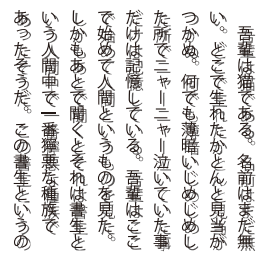 吾輩は猫である。名前はまだ無
い。どこで生れたかとんと見当が
つかぬ。何でも薄暗いじめじめし
た所でニャーニャー泣いていた事
だけは記憶している。吾輩はここ
で始めて人間というものを見た。
しかもあとで聞くとそれは書生と
いう人間中で一番獰悪な種族で
あったそうだ。この書生というの